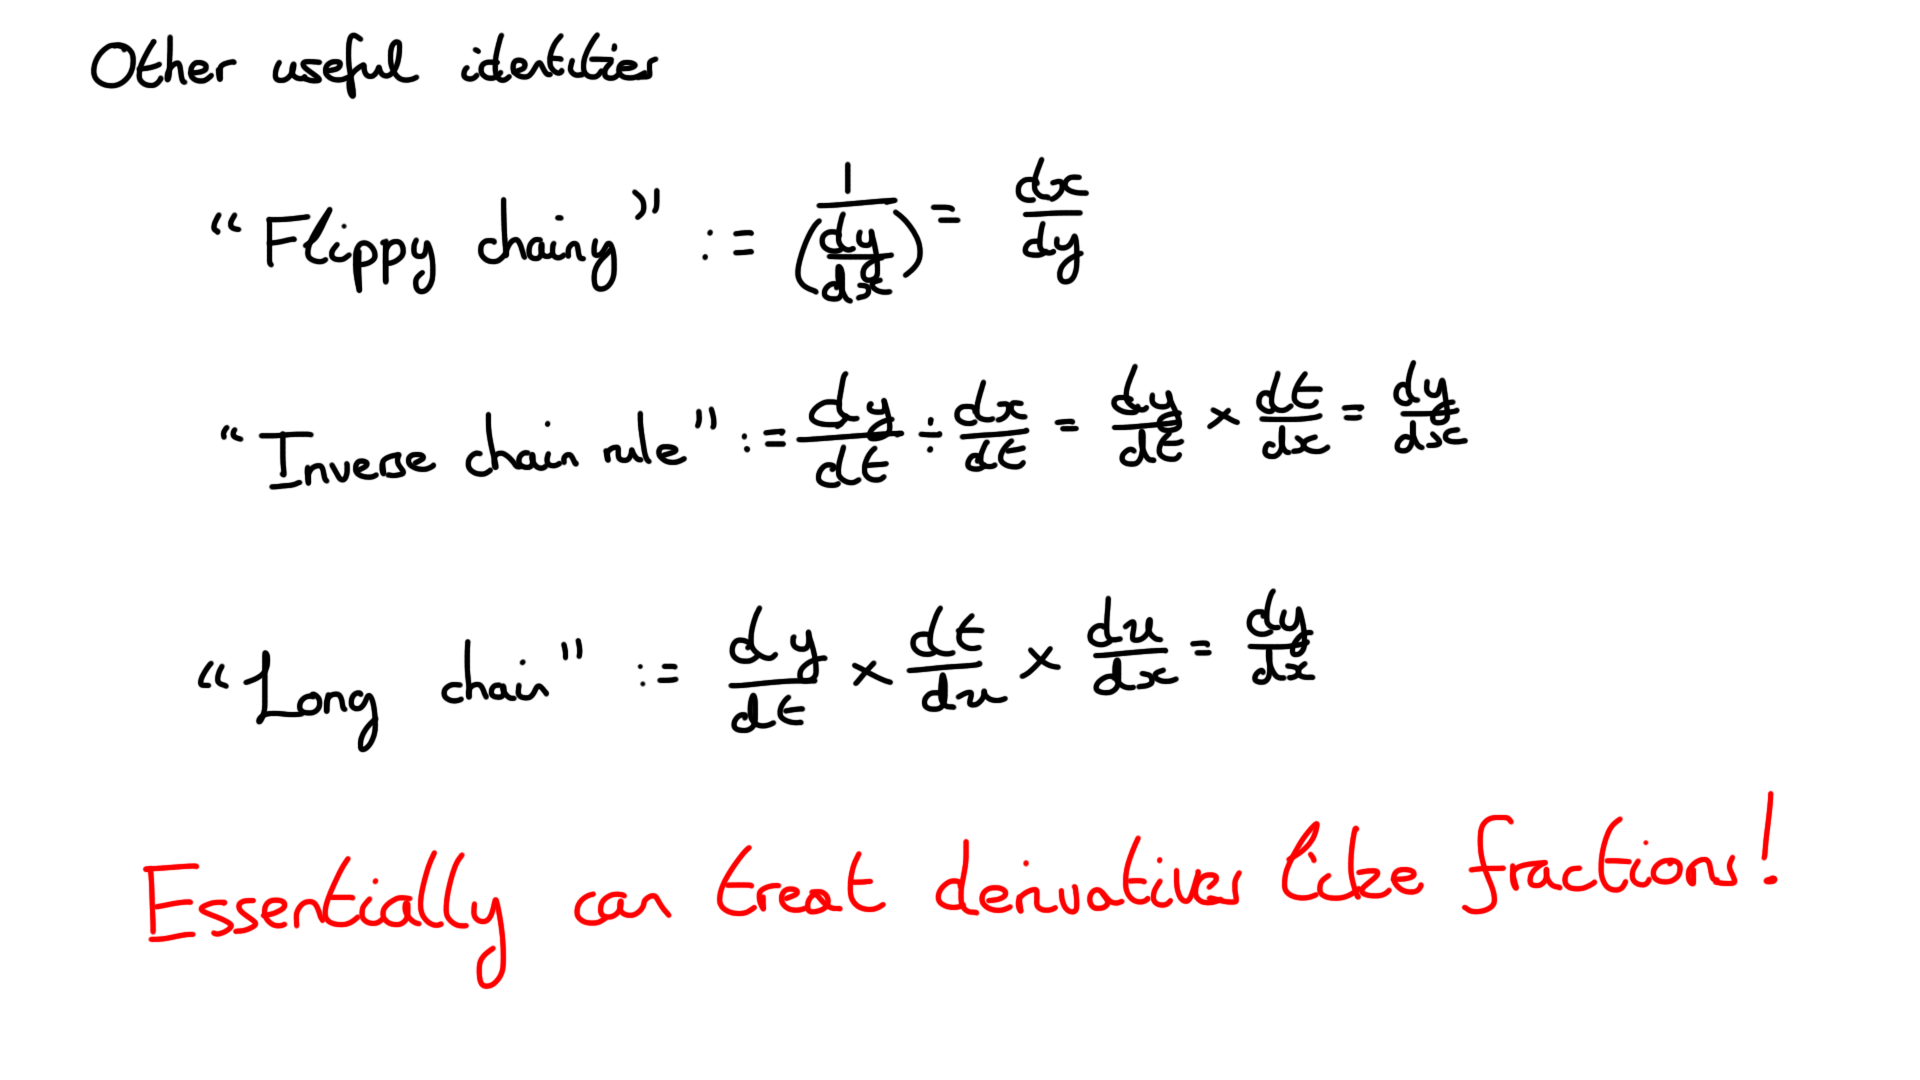 Other useful identities
"Flippy chainy" := 1/(dy/dx) = dx/dy
"Inverse chain rule" := dy/dt ÷ dx/dt = dy/dt × dt/dx = dy/dx
"Long chain" := dy/dt × dt/du × du/dx = dy/dx
Essentially can treat derivatives like fractions!